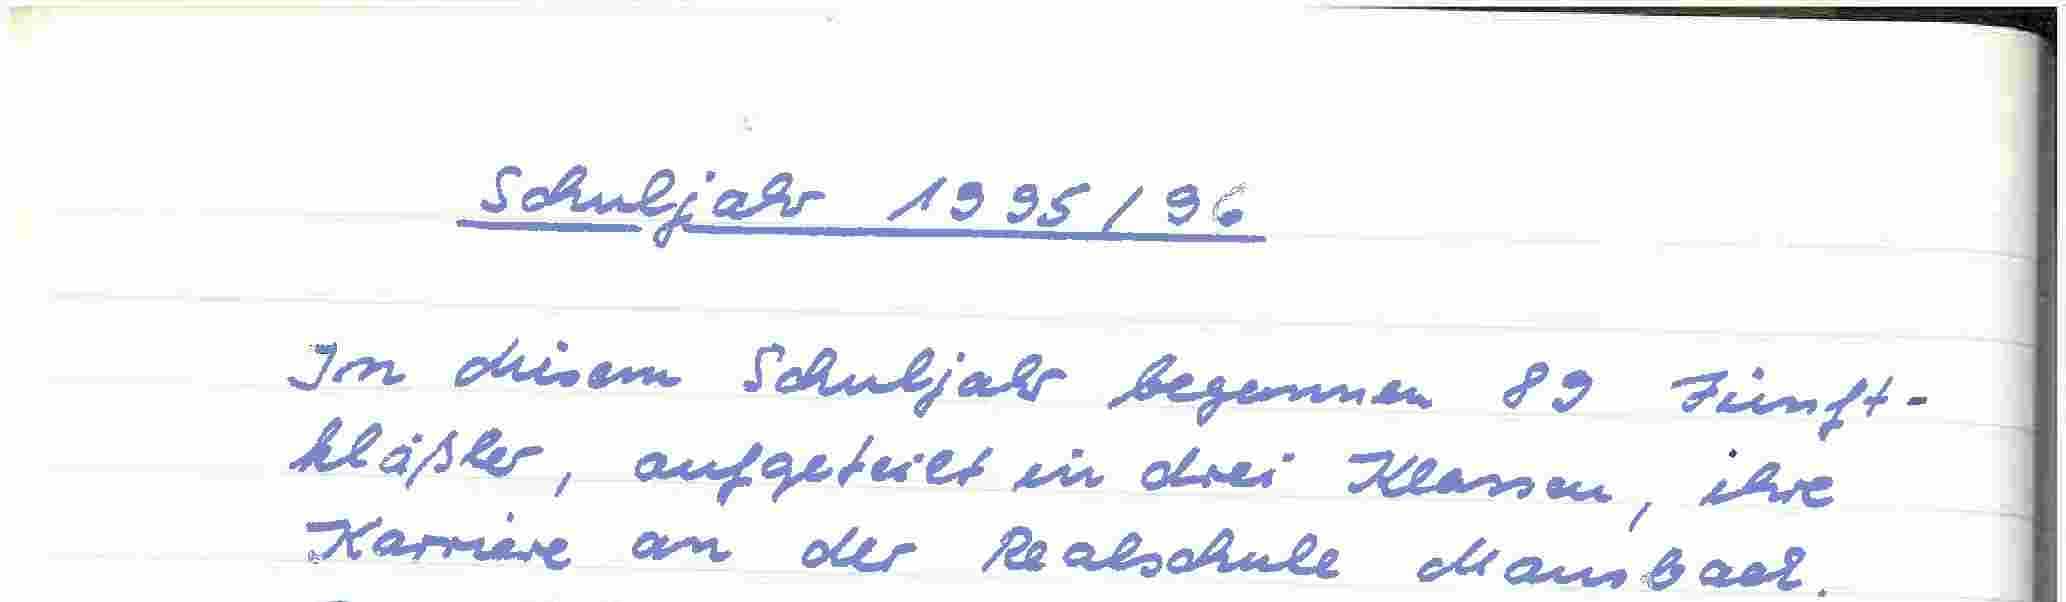 Schuljahr 1995/96
In diesem Schuljahr begannen 89 Fünft-
kläßler, aufgeteilt in drei Klassen, ihre
Karriere an der Realschule Mausbach.